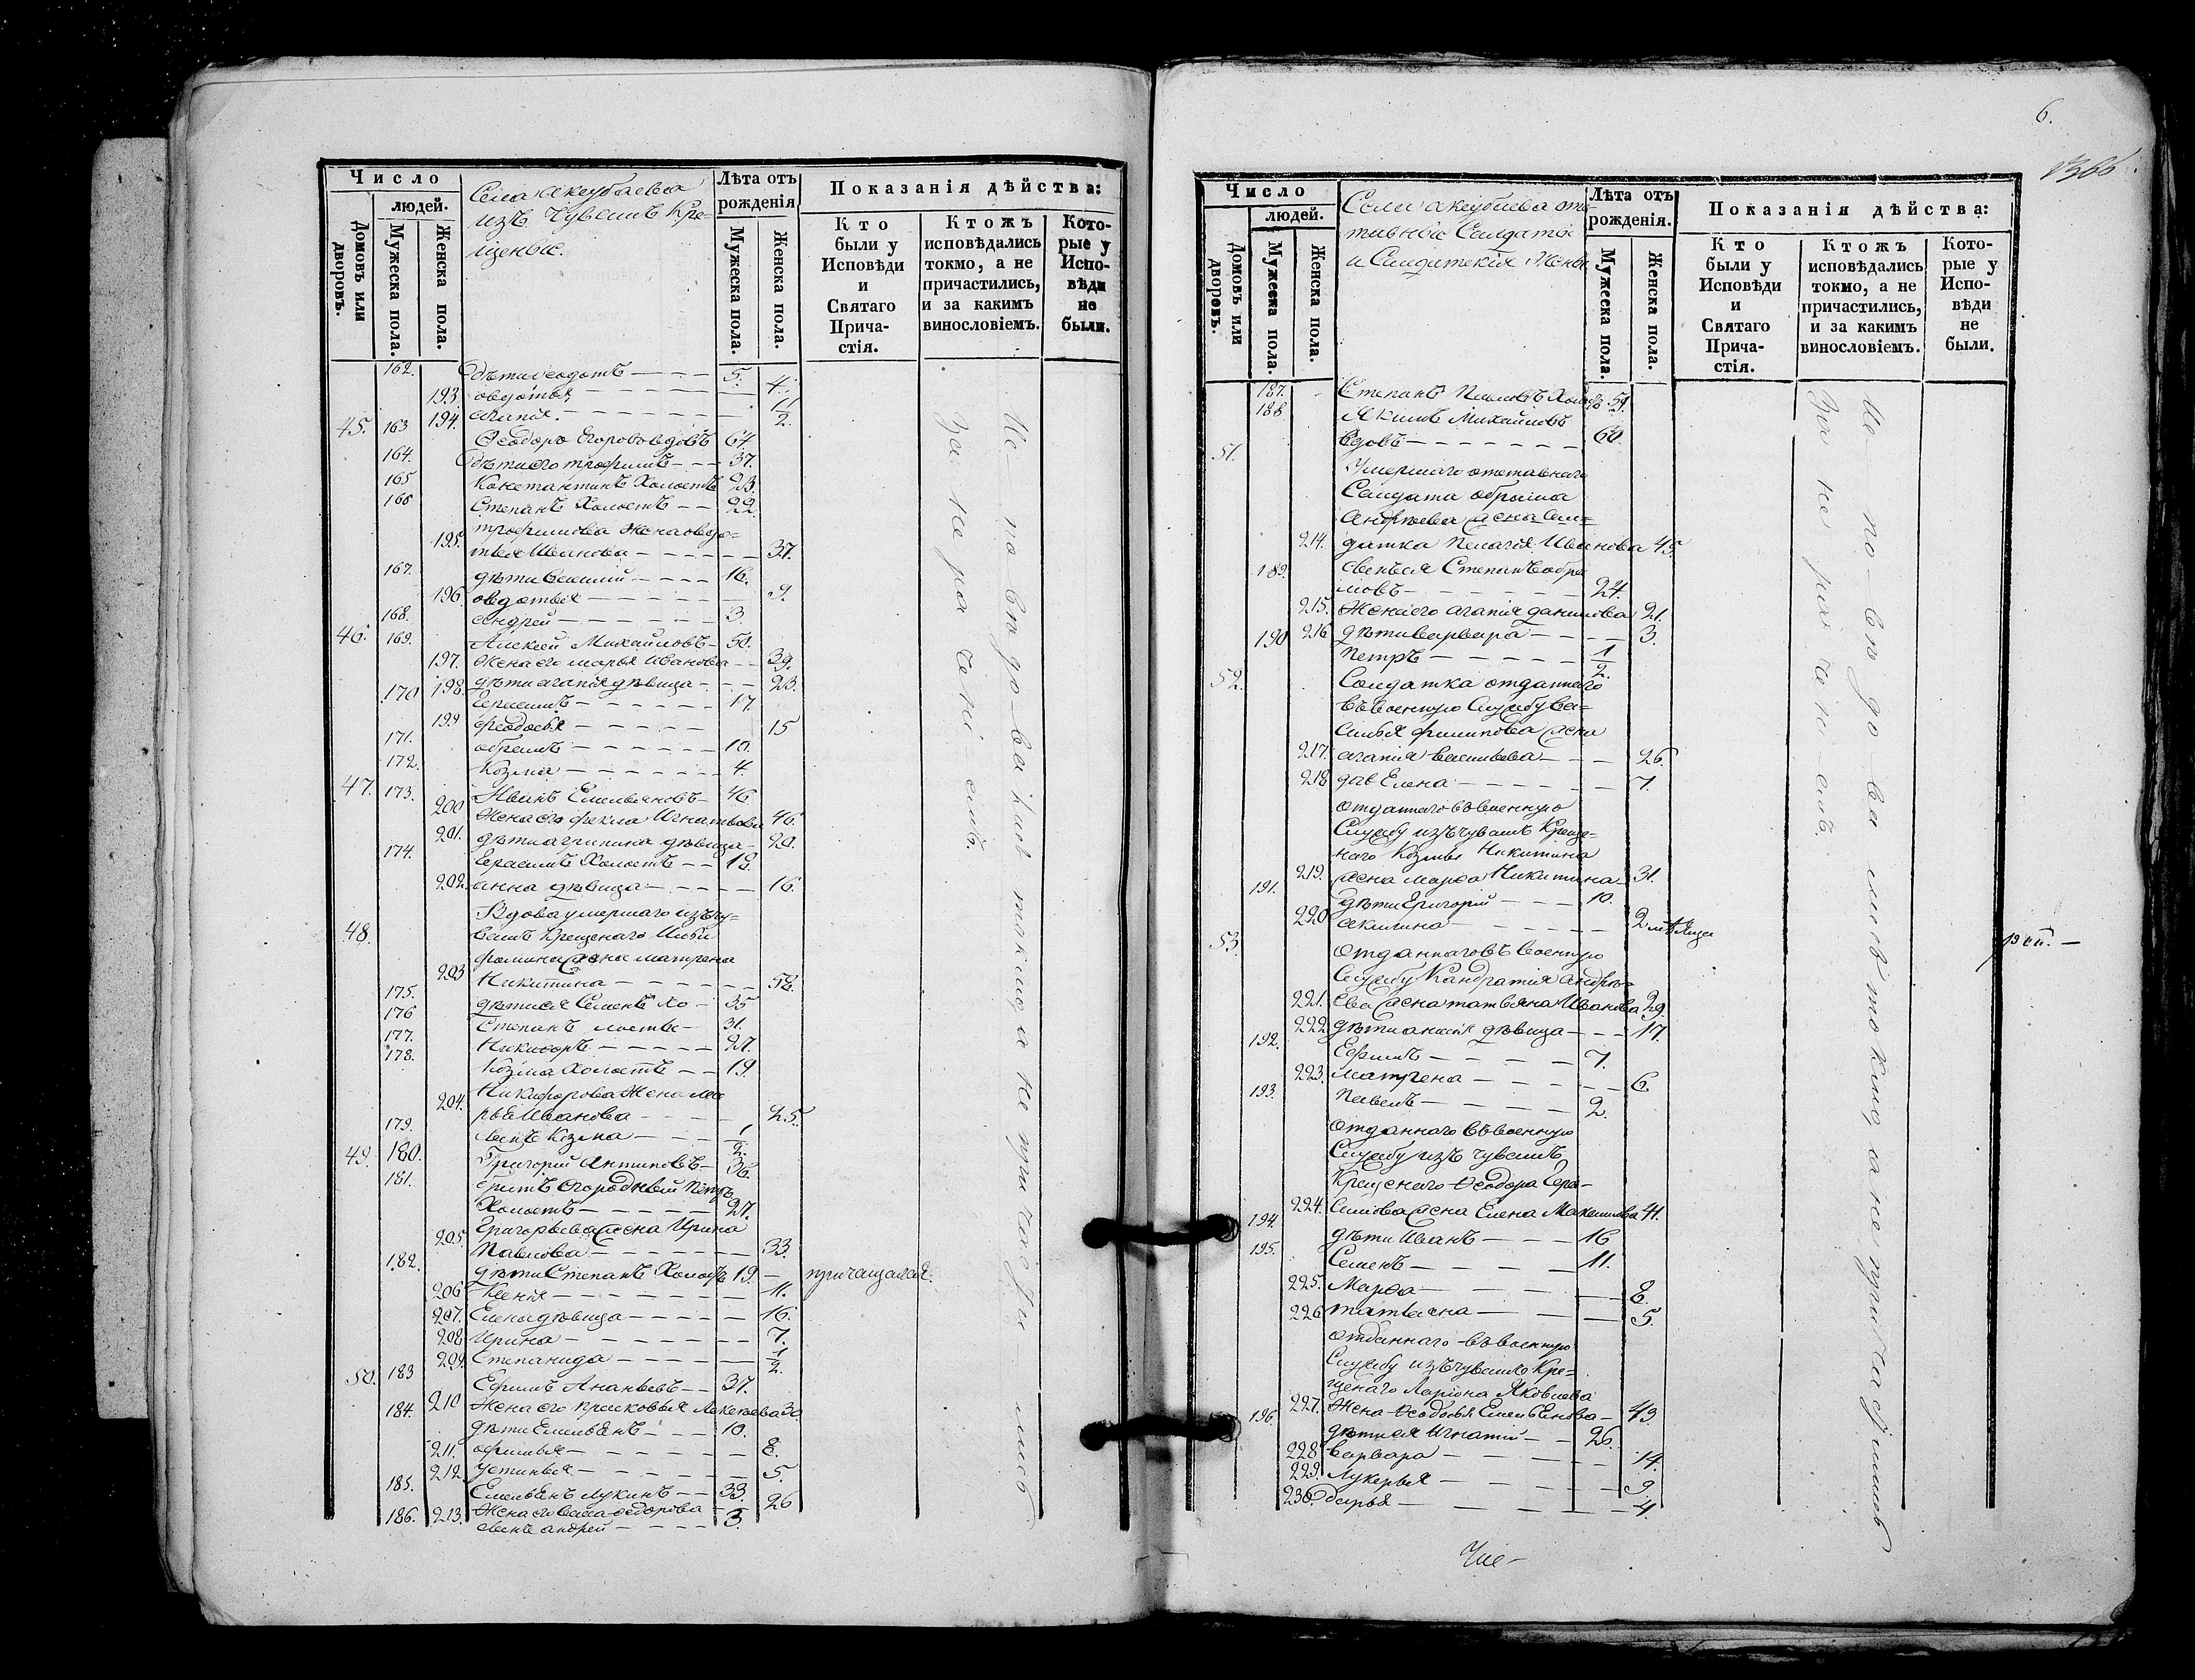 Число
людей.
Домовъ или дворовъ.
Мужеска пола.
Женска пола.
Села Акзубаева
изъ Чувашъ Кре=
щеные.
Лѣта отъ рожденія
Мужеска пола.
Женска пола.
Показанія дѣйства:
Кто были у Исповѣди и Святаго Прича-стія.
Ктожъ исповѣдались токмо, а не причастились, и за какимъ винословіемъ.
Кото-рые у Испо-вѣди не были.
162. дѣти Федотъ 5.
193. овдотья 4.
194. агапія 1/2
45. 163 Ѳеодоръ Егоровъ вдовъ 64.
164. дѣти его трофимъ 37.
165 Константинъ Холостъ 23.
166 Степанъ Холостъ 22.
трофимова жена овдо=
195. тья Иванова 37.
167. дѣти Василий 16.
196. овдотья 9.
168. андрей 3.
46. 169. Алексей Михайловъ 50.
197. жена его марья Иванова 39.
198. дѣти агапія дѣвица 23.
170 Герасимъ 17.
199 феодосья 15
171. обрамъ 10.
172. Козма 4.
47. 173. Иванъ Емельяновъ 46
200 Жена его фекла Игнатьева 46.
201. дѣти агрипина дѣвица 20.
174. Герасимъ Холостъ 18.
202. анна дѣвица 16.
48. Вдова умершаго изъ чу=
вашъ Крещенаго Ильи
фомина жена матрена
203 Никитина 58.
175. дѣти ея Семенъ хо 35
176 Степанъ лосты 31.
177. Никифоръ 27.
178. Козма Холостъ 19.
Никифорова Жена Ма
204. рья Иванова 25.
179. сынъ Козма 1/2.
49. 180. Григорий Антиповъ 36.
181. братъ его родный Петръ
Холостъ 27.
Григорьева жена Ирина
205. Павлова 33.
182. дѣти Степанъ Холостъ 19. причащался.
206 Ксенія 11.
207. Елена дѣвица 16.
208 Ирина 7.
209. Степанида 1/2.
50. 183 Ефимъ Ананьевъ 37.
210 Жена его прасковья Алексеева 30
184. дѣти Емельянъ 10.
211. офимья 8.
212. устинья 5.
185. Емельянъ Лукинъ 33.
213. Жена его ѳедорова 26
186. сынъ андрей 3.
Исповѣдались токмо а не причастились
За нераченіемъ.
6.
1366
Число
людей.
Домовъ или дворовъ.
Мужеска пола.
Женска пола.
Села Акзубаева от=
тавные Солдаты
и Солдатскія Жены
Лѣта отъ рожденія.
Мужеска пола.
Женска пола.
Показанія дѣйства:
Кто были у Исповѣди и Святаго Прича-стія.
Ктожъ исповѣдались токмо, а не причастились, и за какимъ винословіемъ.
Кото-рые у Испо-вѣди не были.
187. Степанъ Павловъ Холостъ 59.
188 Якимъ Михайловъ
вдовъ 60.
51. Умершаго отставнаго
Солдата обрама
Андреева жена Сол=
214. датка Пелагія Иванова 45.
189. сынъ ея Степанъ обра
мовъ 24.
215. Жена его агапія данилова 21.
216 дѣти варвара 3.
190 Петръ 1/2.
52. Солдатка отданнаго
въ военную Службу Ва=
силья филипова жена
217. агапія васильева 26.
218 дочь Елена 7.
отданнаго въ военную
Службу изъ чувашъ Креще=
наго Козмы Никитина
219. жена марфа Никитина 31.
191. дѣти Григорій 10.
220 акилина 2 мѣсяца
53. отданнаго въ военную
Службу Кандратія андрѣ=
221. ева жена татьяна Иванова 29.
222. дѣти дѣвица 17.
192. Ефимъ 7.
223. матрена 6.
193. Павелъ 2.
отданнаго въ военную
Службу изъ чувашъ
Крещенаго Ѳеодора Гера-
224. симова жена Елена Максимова 41.
194. дѣти Иванъ 16
195. Семенъ 11.
225. Марфа 8.
226 татьяна 5.
отданнаго въ военную
Службу изъ чувашъ Кре=
щенаго Ларіона Яковлева
227. Жена Ѳеодосья Емельянова 43
196. дѣти ея Игнатій 26.
228 варвара 14.
229. Лукерья 9
230. дарья 4.
Исповѣдались токмо, а не причастились
За нераченіемъ.